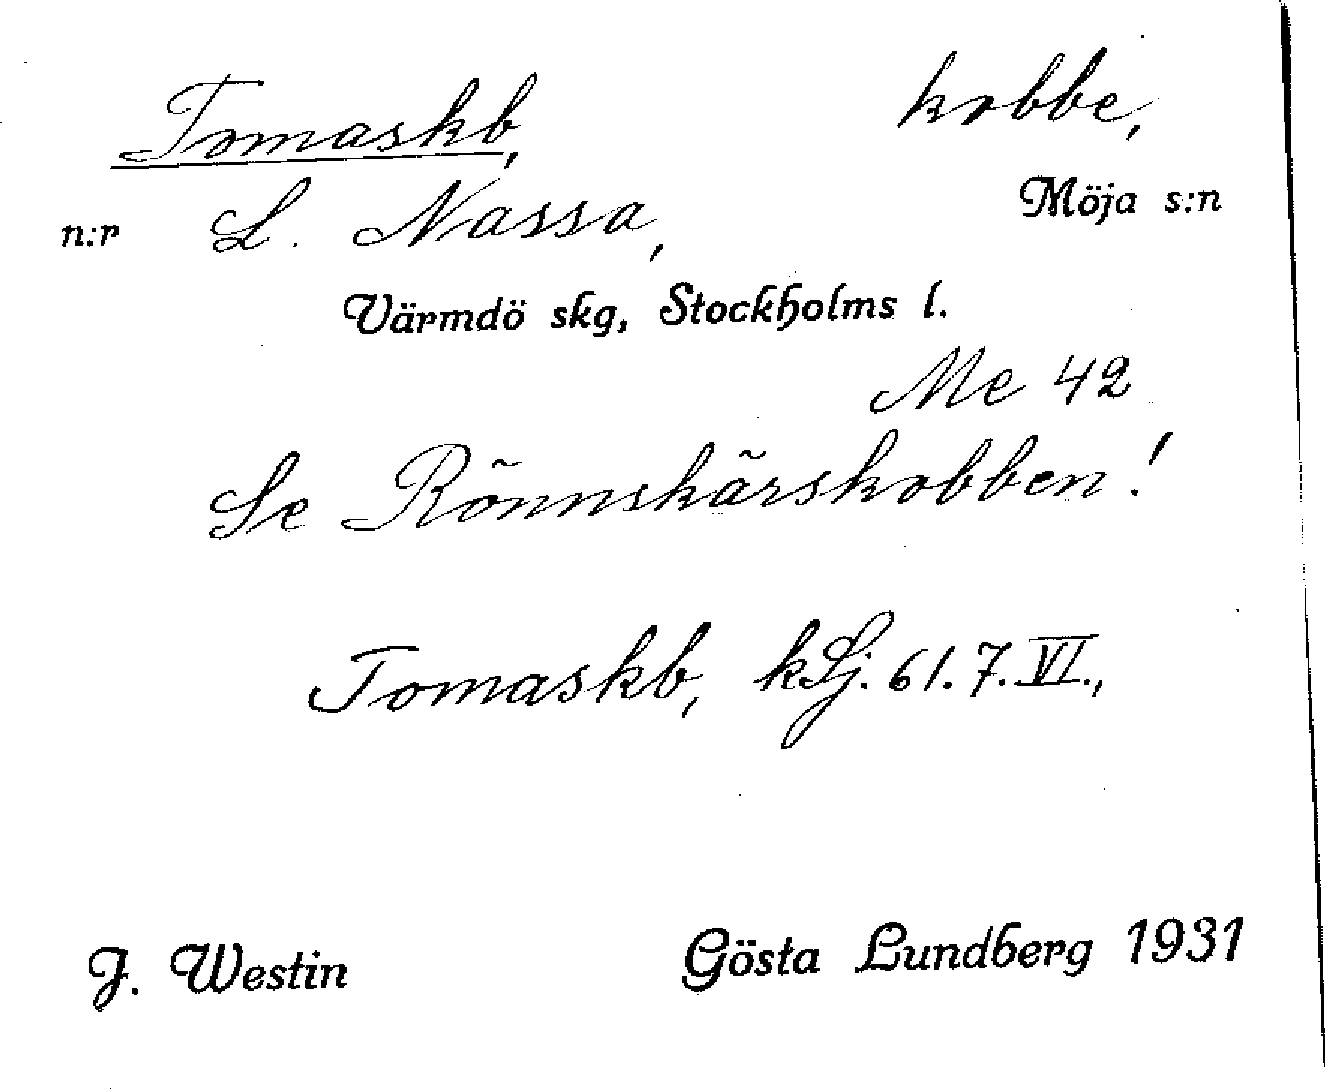 Tomaskb, kobbe,
n:r L. Nassa, Möja s:n
Värmdö skg, Stockholms l.
Me 42
Se Rönnskärskobben!
Tomaskb, kLj. 61.7.VI.,
J. Westin Gösta Lundberg 1931